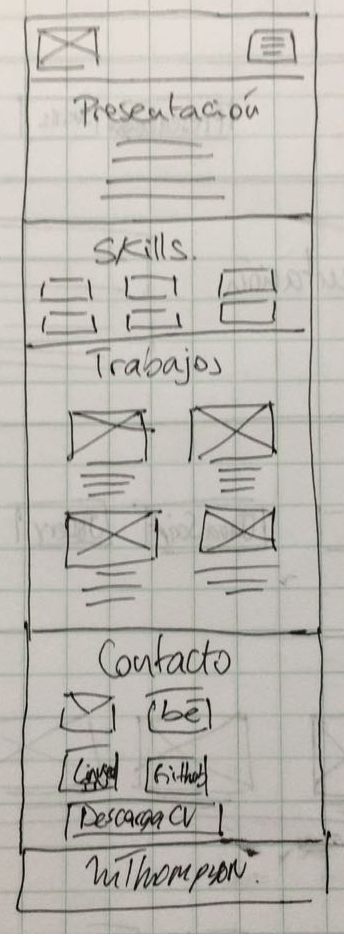 Presentación
Skills.
Trabajos
Contacto
be
Github
Descarga CV
MThompson.